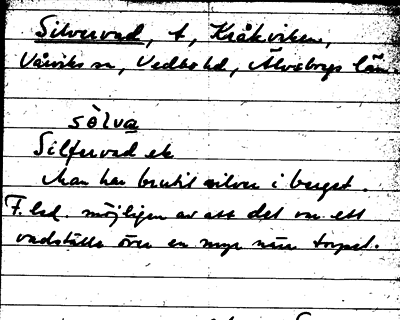 Silvervad, t, Kråkviken,
Vårviks sn, Vedbo hd, Älvsborgs län.
sòlva
Silfervad ek
Man har brutit silver i berget.
F. led. möjligen av att det var ett
vadställe över en myr när torpet.